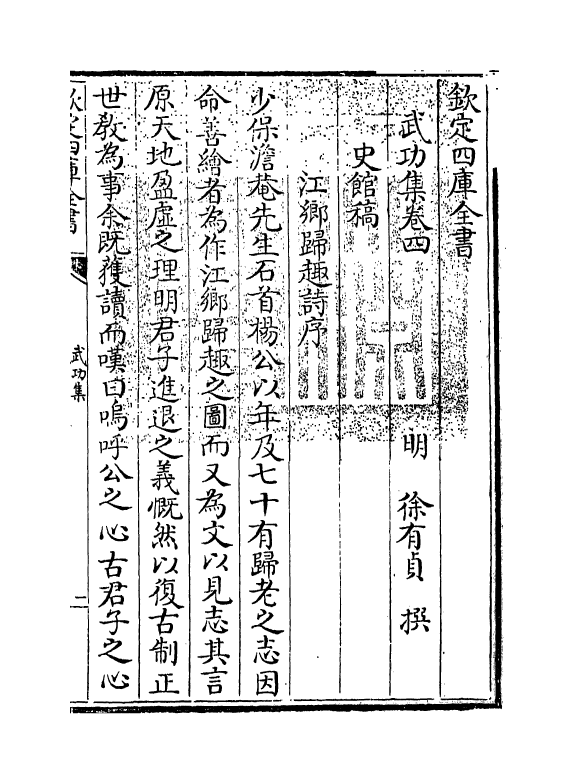 欽定四庫全書
武功集卷四
明　徐有貞　撰
史館稿
江鄉歸趣詩序
少保澹菴先生石首楊公以年及七十有歸老之志因
命善繪者為作江鄉歸趣之圖而又為文以見志其言
原天地盈虛之理明君子進退之義慨然以復古制正
世教為事余既獲讀而嘆曰嗚呼公之心古君子之心
欽定四庫全書
武功集